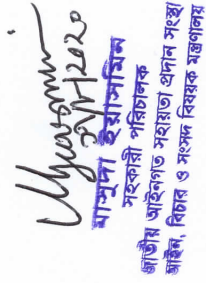 মাসুদা ইয়াসমিন
সহকারী পরিচালক
জাতীয় আইনগত সহায়তা প্রদান সংস্থা
আইন, বিচার ও সংসদ বিষয়ক মন্ত্রণালয়